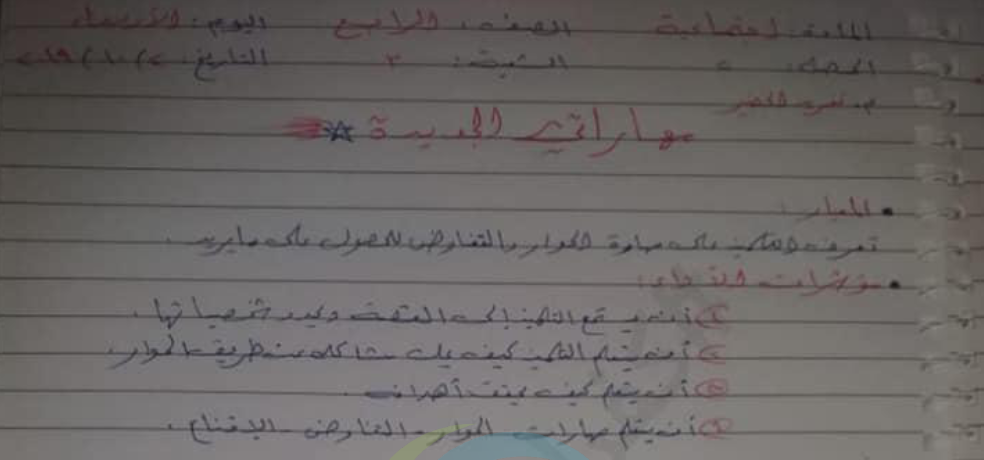 المادة: اجتماعية الصف: الرابع اليوم: الأربعاء
الحصة: ٢ الشعبة: ٣ التاريخ: ٢ / ١٠ / ٢٠١٩
مهاراتي الجديدة
• المعيار:
تعرف التلميذ على مهارة الحوار والتفاوض للحصول على ما يريد.
• مؤشرات الأداء:
① أن يستمع التلميذ إلى القصة ويحدد شخصياتها.
② أن يتعلم التلميذ كيف يحل مشاكله عن طريق الحوار.
③ أن يتعلم كيف يحقق أهدافه.
④ أن يتعلم مهارات الحوار - التفاوض - الإقناع.